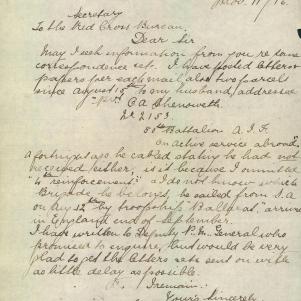 Nov. 11/16.
Secretary
To the Red Cross Bureau.
Dear Sir
May I seek information from you re some
correspondence ect. I have posted letters &
papers per each mail also two parcels
since August 15th to my husband, addressed
C A Chenoweth
No 2153.
50th Battalion A.I.F.
on active service abroad.
A fortnight ago he cabled stating he had not
received either, is it because I ommitted
"4th reinforcements" & I do not know which
Brigade he belongs, he sailed from S.A
on July 12th by troopship "Ballarat" arrived
in England end of September.
I have written to Deputy P.M. General who
promised to enquire, but would be very
glad to get the letters ect sent on with
as little delay as possible.
I remain
Yours Sincerely